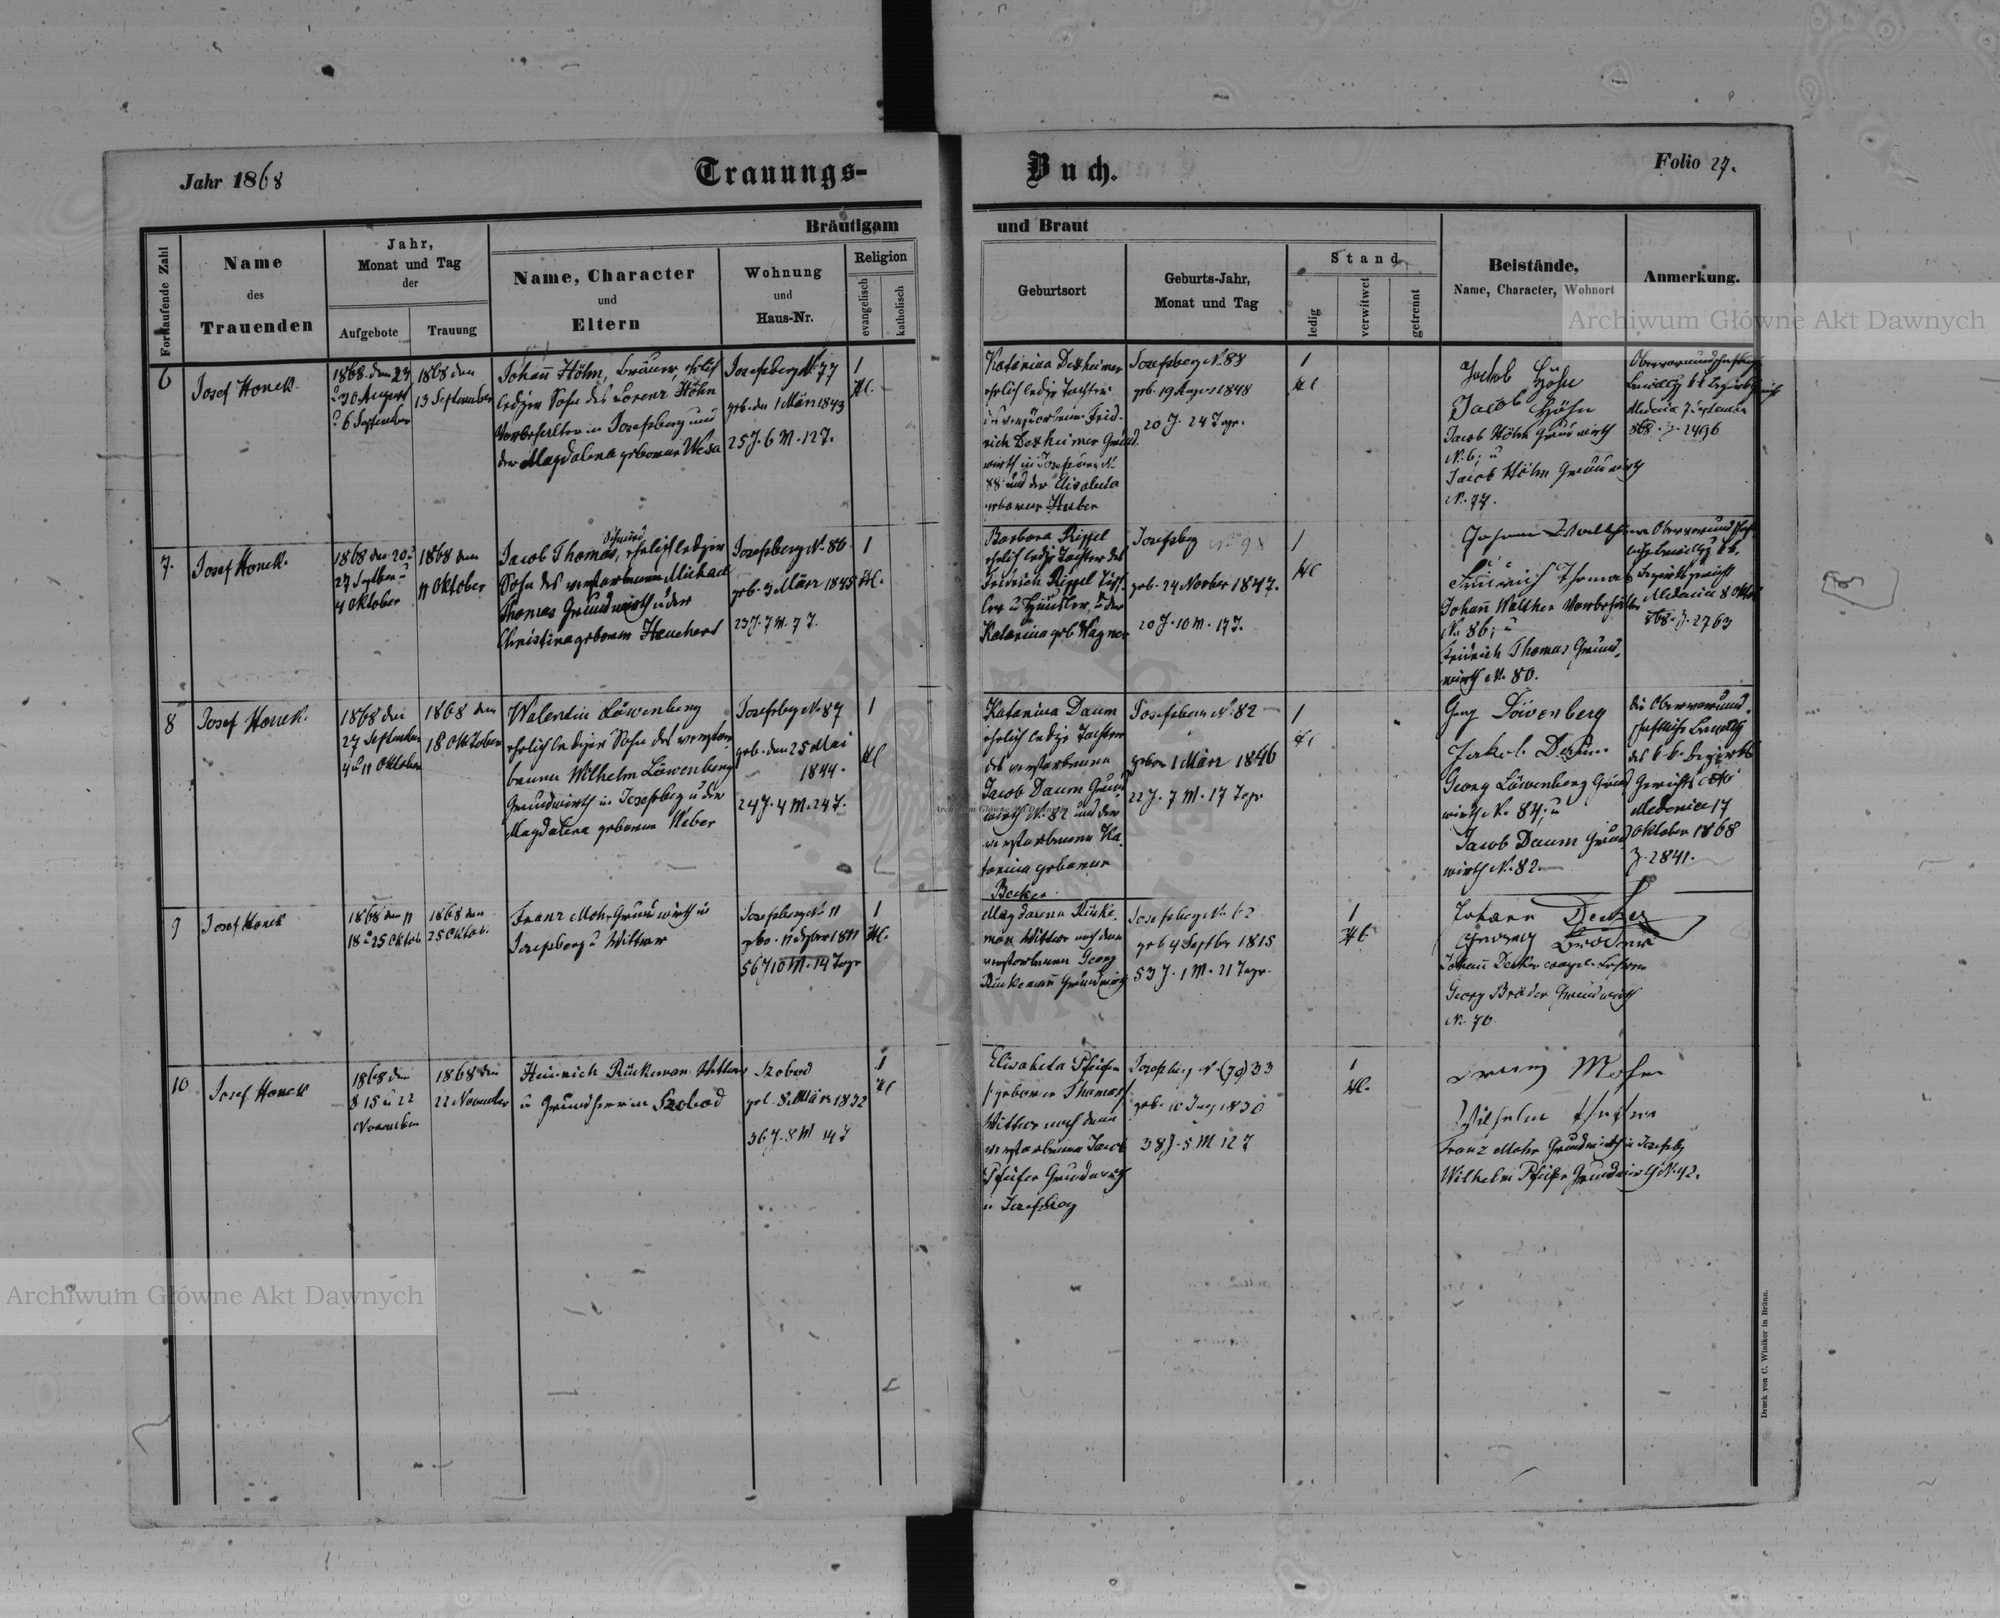 Jahr 1868
Trauungs-
Buch.
Folio 27.
Bräutigam
und Braut
Fortlaufende Zahl
Name
des
Trauenden
Jahr,
Monat und Tag
der
Aufgebote
Trauung
Name, Character
und
Eltern
Wohnung
und
Haus-Nr.
Religion
evangelisch
katholisch
Geburtsort
Geburts-Jahr,
Monat und Tag
Stand
ledig
verwitwet
getrennt
Beistände,
Name, Character, Wohnort
Anmerkung.
6
Josef Honek
1868 den 23
u 30 August
u 6 September
1868 den
13 September
Johann Höhn, ehrlich
lediger Sohn des Lorenz Höhn
Vorbehalter in Josefsberg und
der Magdalena geborenen
Josefsberg N. 77
geb. den 1 März 1843
25 J. 6 M. 12 T.
1
HC.
Katarina Dexheimer
ehrlich ledige Tochter
des verstorbenen Fried-
rich Dexheimer Grund
wirth in Josefsberg N.
88 und der Elisabeta
geborenen Huber
Josefsberg N. 88
geb. 19 August 1848
20 J. 24 Tage.
1
HC
Jakob Höhn
Jacob Höhn
Jacob Höhn Grundwirth
N. 6; u
Jacob Höhn Grundwirth
N. 77.
Medenice
868. Z. 2496
7.
Josef Honek.
1868 den 20 u
27 Septber u
4 Oktober
1868 den
11 Oktober
Schmied
Jacob Thomas, ehrlich lediger
Sohn des verstorbenen Michael
Thomas Grundwirth u der
Christina geborenen
Josefsberg N. 86
geb. 3 März 1845
23 J. 7 M. 7 T.
1
HC.
Barbara Rippel
ehrlich ledige Tochter des
Friedrich Rippel
u Häusler, u der
Katarina geb Wagner
Josefsbg N. 98
geb. 24 Novber 1847.
20 J. 10 M. 17 T.
1
HC
Johann Walther
u
Friedrich Thomas
Johann Walther Vorbehalter
N. 86; u
Friedrich Thomas Grund-
wirth N. 80.
Bezirksgericht
Medenice 8 Oktob
868. Z. 2763
8
Josef Honek.
1868 den
27 September
4 u 11 Oktober
1868 den
18 Oktober
Walentin Löwenberg
ehrlich lediger Sohn des verstor
benen Wilhelm Löwenberg
Grundwirth in Josefsberg u der
Magdalena geborenen Weber
Josefsbg N. 87
geb. den 25 Mai
1844.
24 J. 4 M. 24 T.
1
HC
Katarina Daum
ehrlich ledige Tochter
des verstorbenen
Jacob Daum Grund
wirth N. 82 und der
verstorbenen Ka-
tarina geborenen
Becker
Josefsberg N. 82
geboren 1 März 1846
22 J. 7 M. 17 Tage.
1
HC
Georg Löwenberg
Jakob Daum
Georg Löwenberg Grund
wirth N. 84; u
Jacob Daum Grund
wirth N. 82.
die Obervormund-
schaftliche
des k. k. Bezirks
Gerichts dto
Medenice 17
Oktober 1868
Z. 2841.
9
Josef Honek
1868 den 11
18 u 25 Oktob
1868 den
25 Oktob.
Franz Mohr Grundwirth in
Josefsberg u Wittwer
Josefsberg N. 11
gebo. 11 Dzber 1811
56 J 10 M. 14 Tage
1
HC.
Magdalena Rücke-
man Wittwe nach dem
verstorbenen Georg
Rückemann Grundwirth
Josefsberg N. 62
geb 4 Septbr 1815
53 J. 1 M. 21 Tage.
1
HC
Johann Decker
Georg Bröder
Johann Decker evangel. Lehrer
Georg Bröder Grundwirth
N. 70.
10
Josef Honek
1868 den
8 15 u 22
November
1868 den
22 November
Heinrich Rückeman Wittwer
u Grundherr in Szobod
Szobod
geb. 8 März 1832
36 J. 8 M 14 T
1
HC
Elisabeta Pfeifer
/: geborene Thomas/
Wittwe nach dem
verstorbenen Jacob
Pfeifer Grundwirth
in Josefsberg
Josefsberg N. (70) 33
geb. 10 1830
38 J. 5 M 12 T
1
HC.
Franz Mohr
Wilhelm Pfeifer
Franz Mohr Grundwirth in Josefsbg
Wilhelm Pfeifer Grundwirth N. 42.
Druck von C. Winiker in Brünn.
Archiwum Główne Akt Dawnych
Archiwum Główne Akt Dawnych